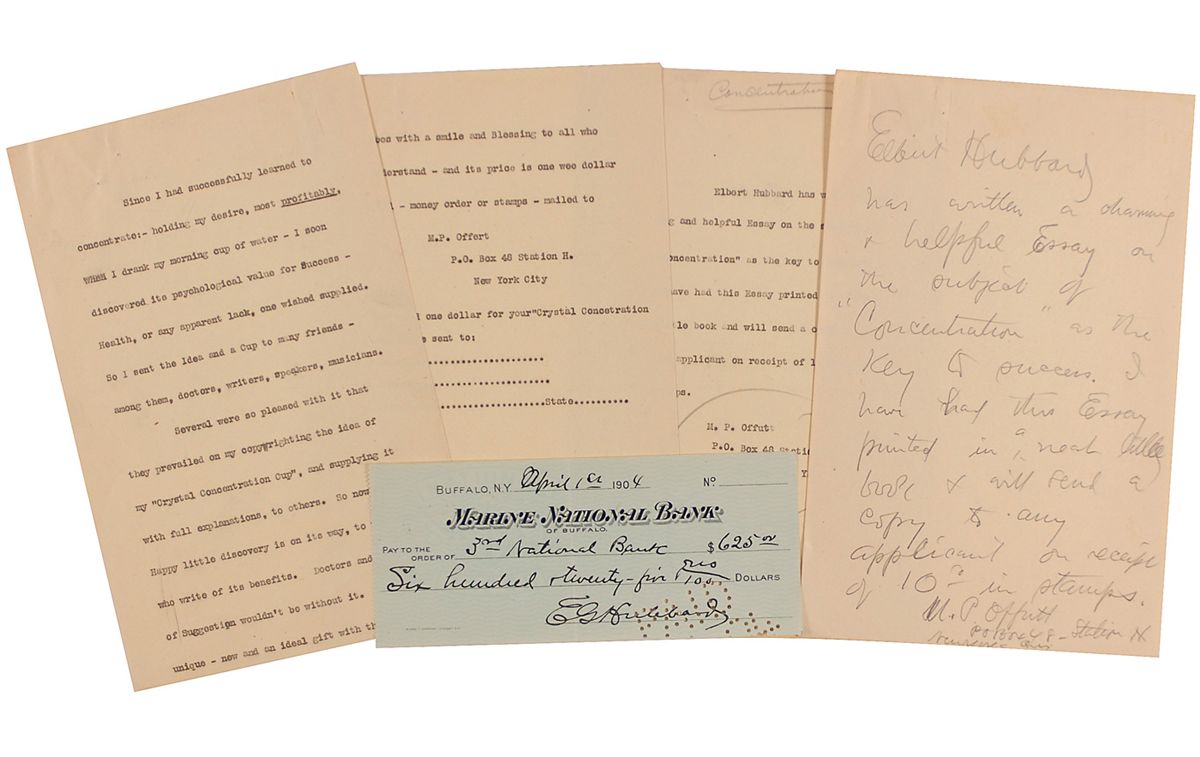 Since I had successfully learned to
concentrate:- holding my desire, most profitably,
WHEN I drank my morning cup of water - I soon
discovered its psychological value for Success -
Health, or any apparent lack, one wished supplied.
So I sent the Idea and a Cup to many friends -
among them, doctors, writers, speakers, musicians.
Several were so pleased with it that
they prevailed on my copywrighting the idea of
my "Crystal Concentration Cup", and supplying it
with full explanations, to others. So now
Happy little discovery is on its way, to
who write of its benefits. Doctors and
of Suggestion wouldn't be without it.
unique - new and an ideal gift with th
oes with a smile and Blessing to all who
erstand - and its price is one wee dollar
- money order or stamps - mailed to
M.P. Offert
P.O. Box 48 Station H.
New York City
one dollar for your "Crystal Concetration
e sent to:
......................
......................
......................State..........
Concentration
Elbert Hubbard has w
g and helpful Essay on the s
oncentration" as the key to
ave had this Essay printed
le book and will send a c
applicant on receipt of 1
ps.
M. P. Offutt
P.O. Box 48 Stati
Y
Elbert Hubbard
has written a charming
& helpful Essay on
the subject of
"Concentration" as the
Key to success. I
have had this Essay
printed in a neat little
book & will send a
copy to any
applicant on receipt
of 10¢ in stamps.
M. P. Offutt
PO Box 48 - Station H
BUFFALO, N.Y. April 1st 1904 No
MARINE NATIONAL BANK
OF BUFFALO.
PAY TO THE
ORDER OF 3rd National Bank $625 00
Six hundred & twenty-five no/100 DOLLARS
E G Hubbard